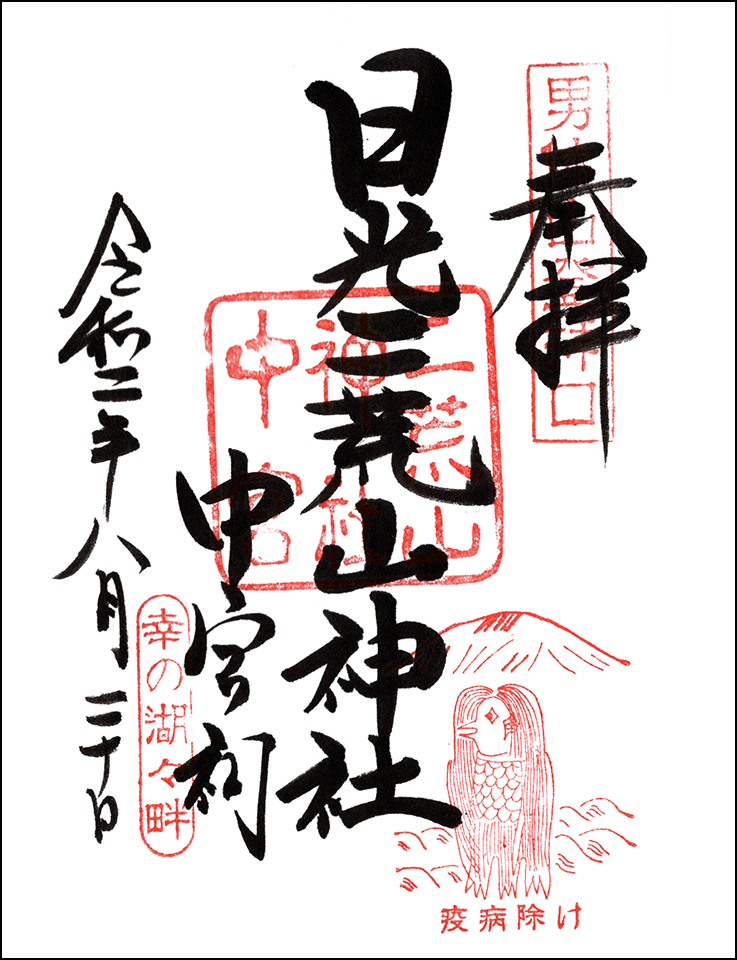 奉拝
日光二荒山神社
中宮祠
令和二年八月二十日
二荒山
神社
中宮
幸の湖々畔
疫病除け